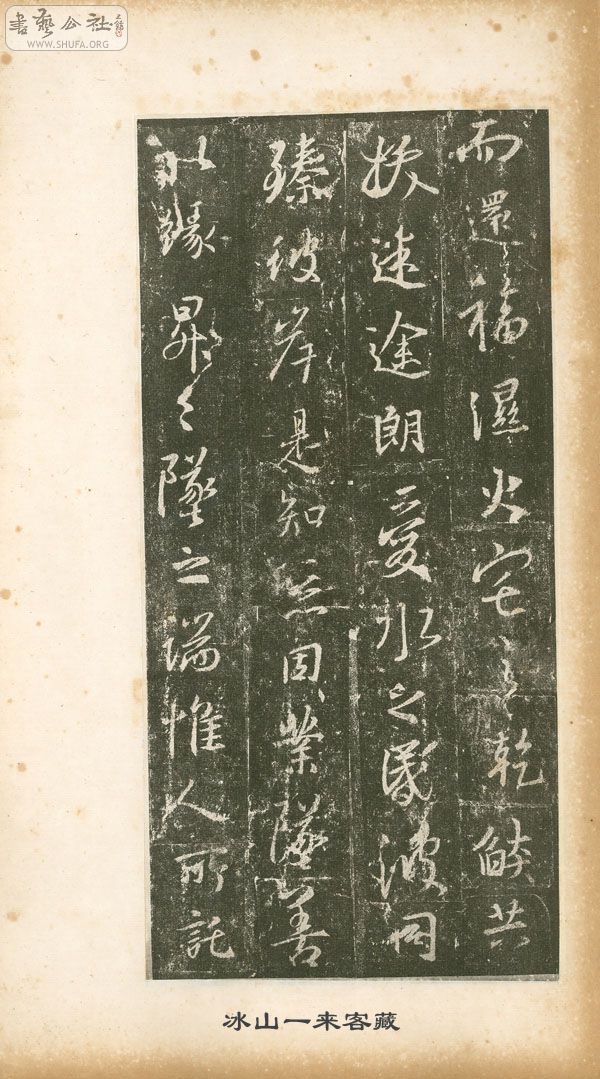 書藝公社
WWW.SHUFA.ORG
而還福濕火宅之乾燄共
拔迷途朗愛水之昬波同
臻彼岸是知惡因業墜善
以緣昇々墜之端惟人所託
冰山一来客藏